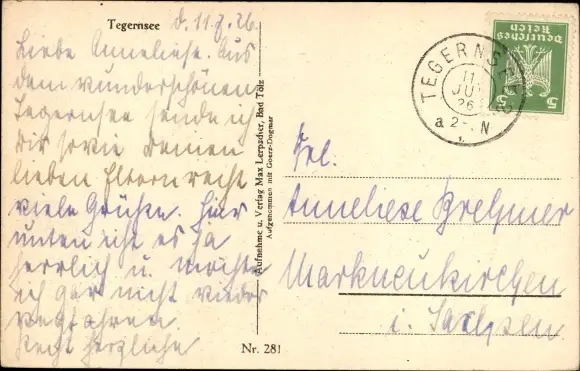 Tegernsee d. 11.7.26.
Liebe Anneliese. Aus
dem wunderschönen
Tegernsee sende ich
Dir sowie Deinen
lieben Eltern recht
viele Grüße. Hier
unten ist es ja
herrlich u. möchte
ich gar nicht wieder
fortfahren
Recht herzliche
Nr. 281
Aufnehme u. Verlag Max Lerpscher, Bad Tölz
Aufgenommen mit Goerz-Dogmar
Deutsches
Reich
5 5
TEGERNSEE
11
JUL
26
a 2- N
Frl.
Anneliese
Markneukirchen
i. Sachsen.